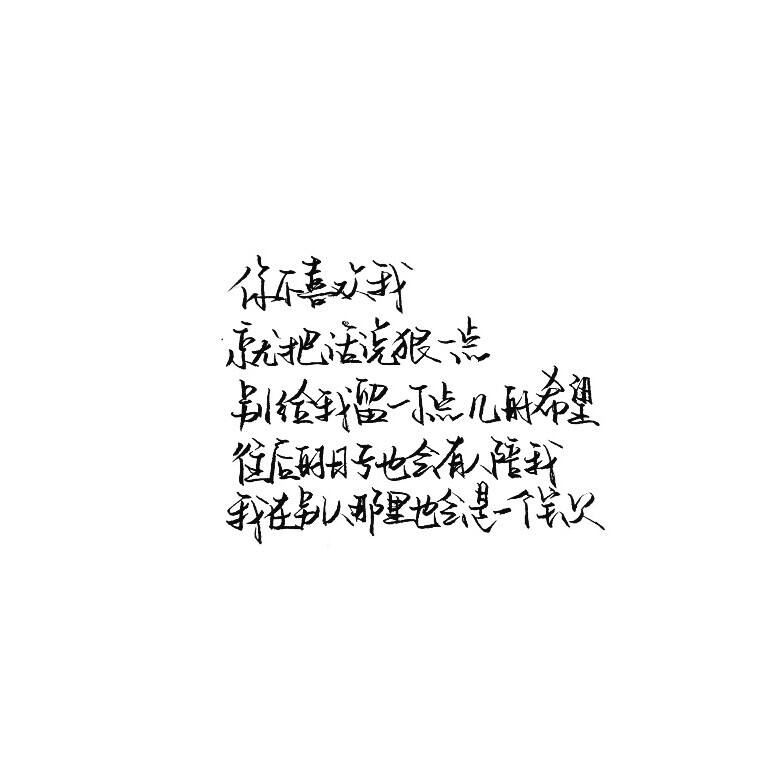 你不喜欢我
就把话说狠一点
别给我留一丁点儿的希望
往后的日子也会有人陪我
我在别人那里也会是一个宝贝